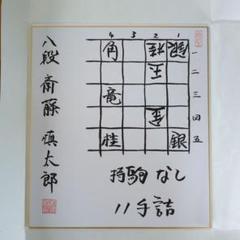 八段 斎藤 慎太郎
4 3 2 1
角 桂 銀 一
玉 二
竜 三
金 四
桂 銀 五
持駒 なし
11手詰